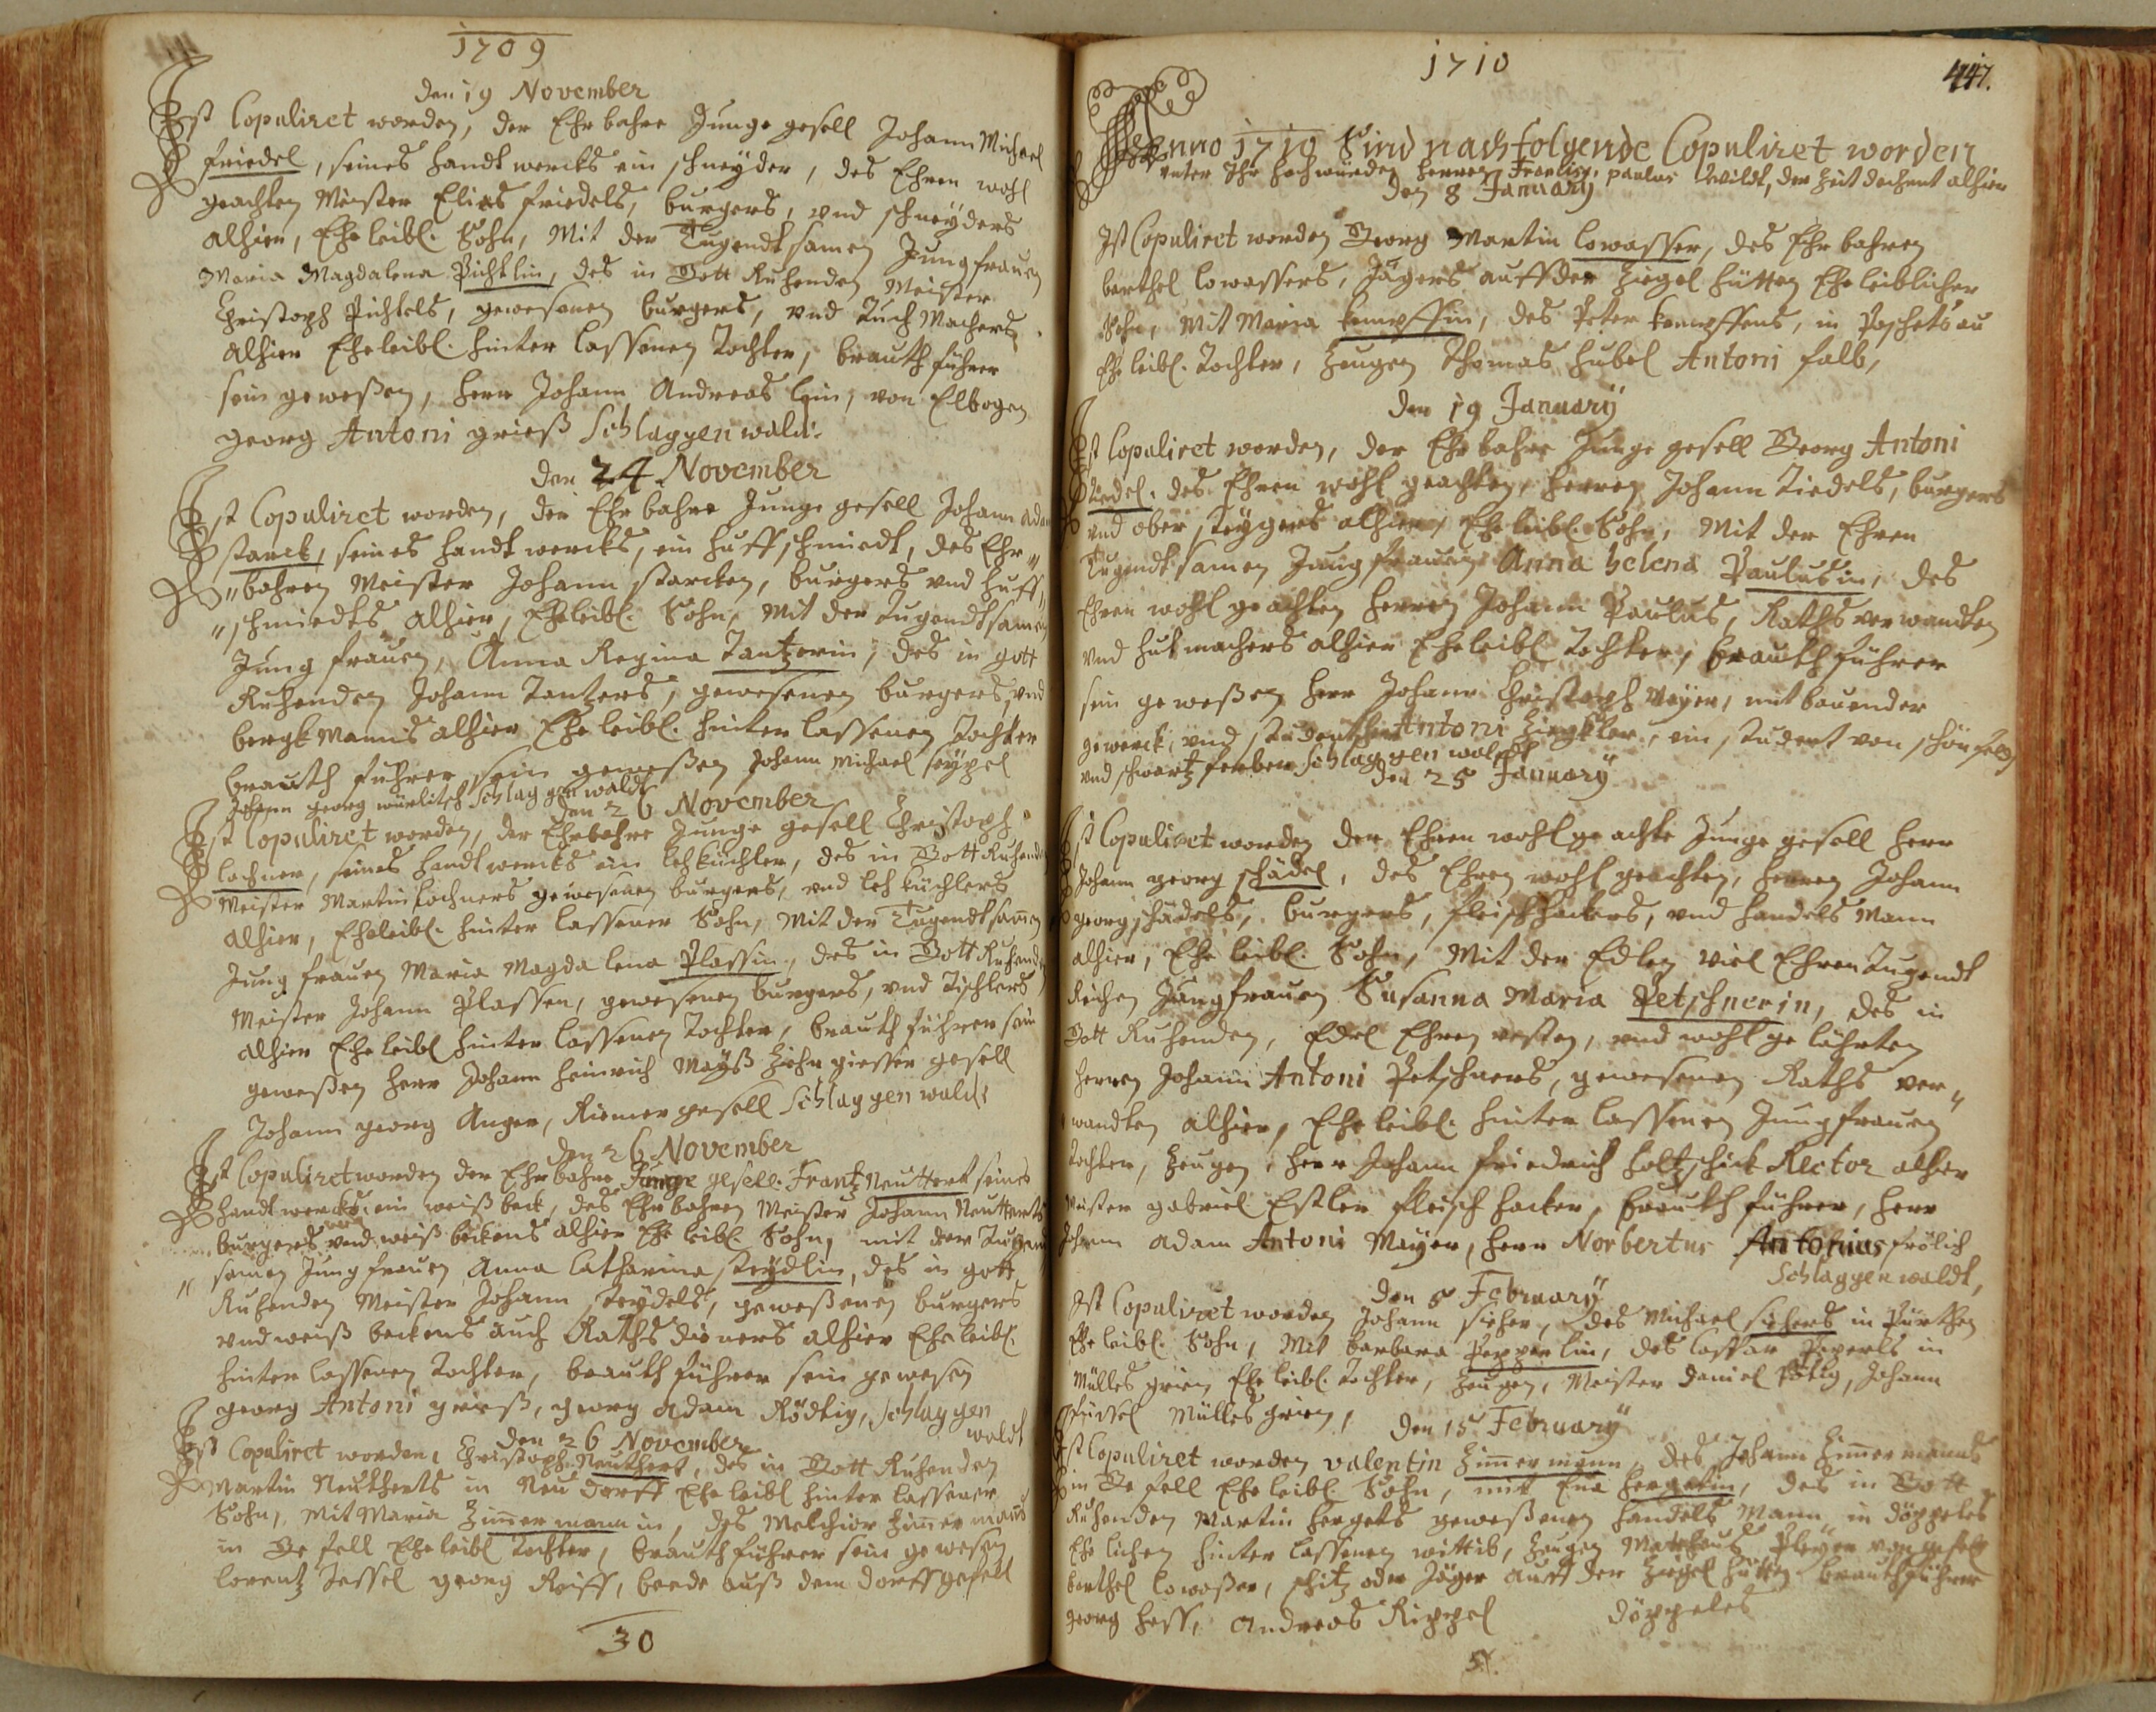 1709
den 19 November
Ist Copuliret worden, der Ehrbahre Junge gesell Johann Michael
Friedel, seines handtwercks ein schneyder, des Ehren wohl
geachten Meister Elias Friedels, burgers, vnd schneyders
alhier, Eheleibl. Sohn, Mit der Tugendtsamen Jungfrauen
Maria Magdalena Pichtlin, des in Gott Ruhenden Meister
Christoph Pichtels, gewesenen burgers, vnd Tuch Machers
alhier Eheleibl. hinter lassenen Tochter, brauth führer
sein geweßen, herr Johann Andreas lein, von Elbogen
georg Antoni grieß Schlaggenwald.
den 24 November
Ist Copuliret worden, der Ehrbahre Junge gesell Johann adam
starck, seines handtwercks, ein huffschmiedt, des Ehr„
„bahren Meister Johann starcken, burgers vnd huff„
„schmiedts alhier, Eheleibl. Sohn, Mit der Tugendtsamen
Jungfrauen, Anna Regina Tantzerin, des in gott
Ruhenden Johann Tantzers, gewesenen burgers, vnd
bergkManns alhier Eheleibl. hinter lassenen Tochter
brauth führer sein geweßen Johann Michael seypel
Johann georg würlitsch Schlaggenwaldt
den 26 November
Ist Copuliret worden, der Ehrbahre Junge gesell Christoph
lochner, seines handtwercks ein lebküchler, des in Gott Ruhenden
Meister Martin Lochners gewesenen burgers, vnd leb küchlers
alhier, Eheleibl. hinter lassener Sohn, Mit der Tugendtsamen
Jungfrauen Maria Magdalena Plassin, des in Gott Ruhenden
Meister Johann Plassen, gewesenen burgers, vnd Tischlers
alhier Eheleibl hinter lassenen Tochter, brauth führer sein
geweßen herr Johann Heinrich Mayß Ziehn giesser gesell
Johann georg Anger, Riemergesell Schlaggenwald:
den 26 November
Ist Copuliret worden der Ehrbahre Junge gesell Frantz Neuttert seines
handtwercks, ein weiß beck, des Ehrbahren Meister Johann Neutterts
burgers vnd weiß beckens alhier Eheleibl. Sohn, mit der Tugend„
„samen Jungfrauen Anna Catharina steydlin, des in gott
Ruhenden Meister Johann steydels, geweßenen burgers
vnd weiß beckens auch Raths dieners alhier Eheleibl.
hinter lassenen Tochter, brauth führer sein gewesen
georg Antoni grieß, georg adam Rödtig, schlaggen
waldt
den 26 November
Ist Copuliret worden, Christoph Neuthert, des in Gott Ruhenden
Martin Neutherts in Neudorff Eheleibl hinter lassener
Sohn, Mit Maria Zimmermannin, des Melchior Zimmermanns
in Gefell Eheleibl Tochter, brauthführer sein gewesen
lorentz Tessel georg Reiff, beede auß dem dorff gefell
30
1710
447.
Anno 1710 Sind nachfolgende Copuliret worden
vnter Ihr hochwürden herren Francisc. paulus Wildt, der Zeit dechent alhier
den 8 January
Ist Copuliret worden Georg Martin lowasser, des Ehrbahren
barthel lowassers, Jägers auff der Ziegel hütten Eheleiblicher
Sohn, Mit Maria kempffin, des Peter kempffens, in Poschetsau
Eheleibl. Tochter, Zeugen Thomas hubel Antoni falb,
den 19 January
Ist Copuliret worden, der Ehrbahre Junge gesell Georg Antoni
Tiedel, des Ehren wohl geachten, herren Johann Tiedels, burgers
vnd ober steygers alhier, Eheleibl. Sohn, Mit der Ehren
Tugendtsamen Jungfrauen Anna helena Paulusin, des
Ehren wohl geachten herren Johann Paulus, Raths verwandten
vnd hutmachers alhier Eheleibl Tochter, brauth führer
sein geweßen herr Johann Christoph Mayer, mit bauender
gewerck, vnd Antoni Ziegler, ein student von schönfeld
vnd schwartz ferber Schlaggenwaldt
den 25 January
Ist Copuliret worden der Ehren wohl geachte Junge gesell herr
Johann georg schädel, des Ehren wohl geachten, herren Johann
georg schädels, burgers, fleischhackers, vnd handels Mann
alhier, Eheleibl. Sohn, Mit der Edlen viel Ehren Tugendt
Reichen Jungfrauen Susanna Maria Petschnerin, des in
Gott Ruhenden, Edel Ehren vesten, vnd wohl gelährten
herren Johann Antoni Petschners, gewesenen Raths ver„
wandten alhier, Eheleibl. hinter lassenen Jungfrauen
Tochter, Zeugen, herr Johann friedrich holtzschick Rector alhier
Meister gabriel Estler fleisch hacker, brauth führer, herr
Johann adam Antoni Mayer, herr Norbertus Antonius frölich
Schlaggenwaldt,
den 5 February
Ist Copuliret worden Johann sieher, des Michael siehers in Pürthen
Eheleibl. Sohn, Mit barbara Pepperlin, des Caspar Peperls in
Mülles grien Eheleibl. Tochter, Zeugen, Meister Daniel , Johann
Müllesgrien,
den 15 February
Ist Copuliret worden valentin Zimmermann, des Johann Zimmermanns
in Gefell Eheleibl. Sohn, mit Eua hergetin, des in Gott
Ruhenden Martin hergets geweßenen handels Mann in döppeles
Ehelichen hinter lassenen wittib, Zeugen Matheus Pleyer von gefell
barthel lowaßer, schitz oder Jäger auff der Ziegel hütten brauthführer
georg hess, andreas Rippel döppeles
5.